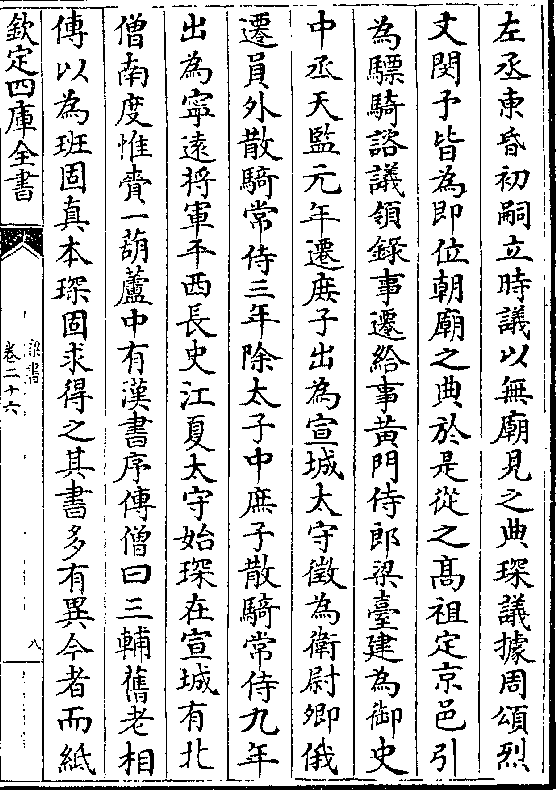 左丞東昏初嗣立時議以無廟見之典琛議據周頌烈
文閔予皆為即位朝廟之典於是從之髙祖定京邑引
為驃騎諮議領錄事遷給事黃門侍郎梁臺建為御史
中丞天監元年遷庻子出為宣城太守徵為衛尉卿俄
遷員外散騎常侍三年除太子中庻子散騎常侍九年
出為寧遠將軍平西長史江夏太守始琛在宣城有北
僧南度惟賫一葫蘆中有漢書序傳僧曰三輔舊老相
傳以為班固真本琛固求得之其書多有異今者而紙
欽定四庫全書
梁書
卷二十六
八